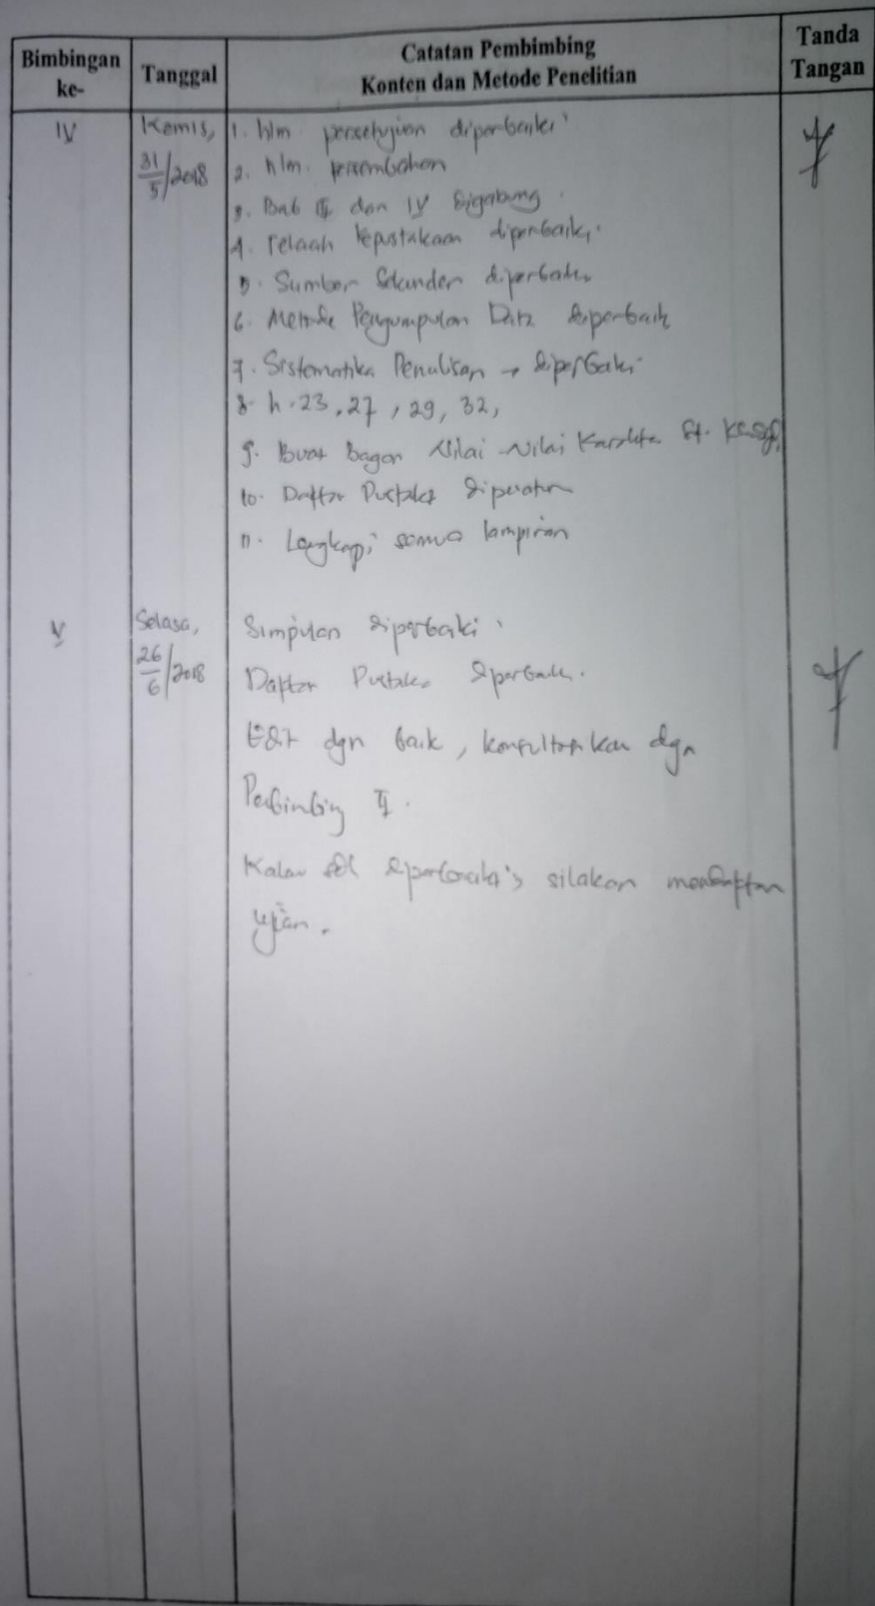 Bimbingan ke-
Tanggal
Catatan Pembimbing
Konten dan Metode Penelitian
Tanda Tangan
IV
Kamis,
31/5/2018
1. hlm persetujuan diperbaiki
2. hlm. persembahan
3. Bab III dan IV digabung.
4. Telaah kepustakaan diperbaiki.
5. Sumber Sekunder diperbaiki
6. Metode Pengumpulan Data diperbaiki
7. Sistematika Penulisan → diperbaiki
8. h. 23, 27, 29, 32,
9. Buat Bagan Nilai-Nilai Karakter
10. Daftar Pustaka
11. Lengkapi semua lampiran
V
Selasa,
26/6/2018
Simpulan diperbaiki.
Daftar Pustaka diperbaiki.
Edit dgn baik, konsultasikan dgn
Pembimbing II.
Kalau sdh diperbaiki, silakan mendaftar
ujian.